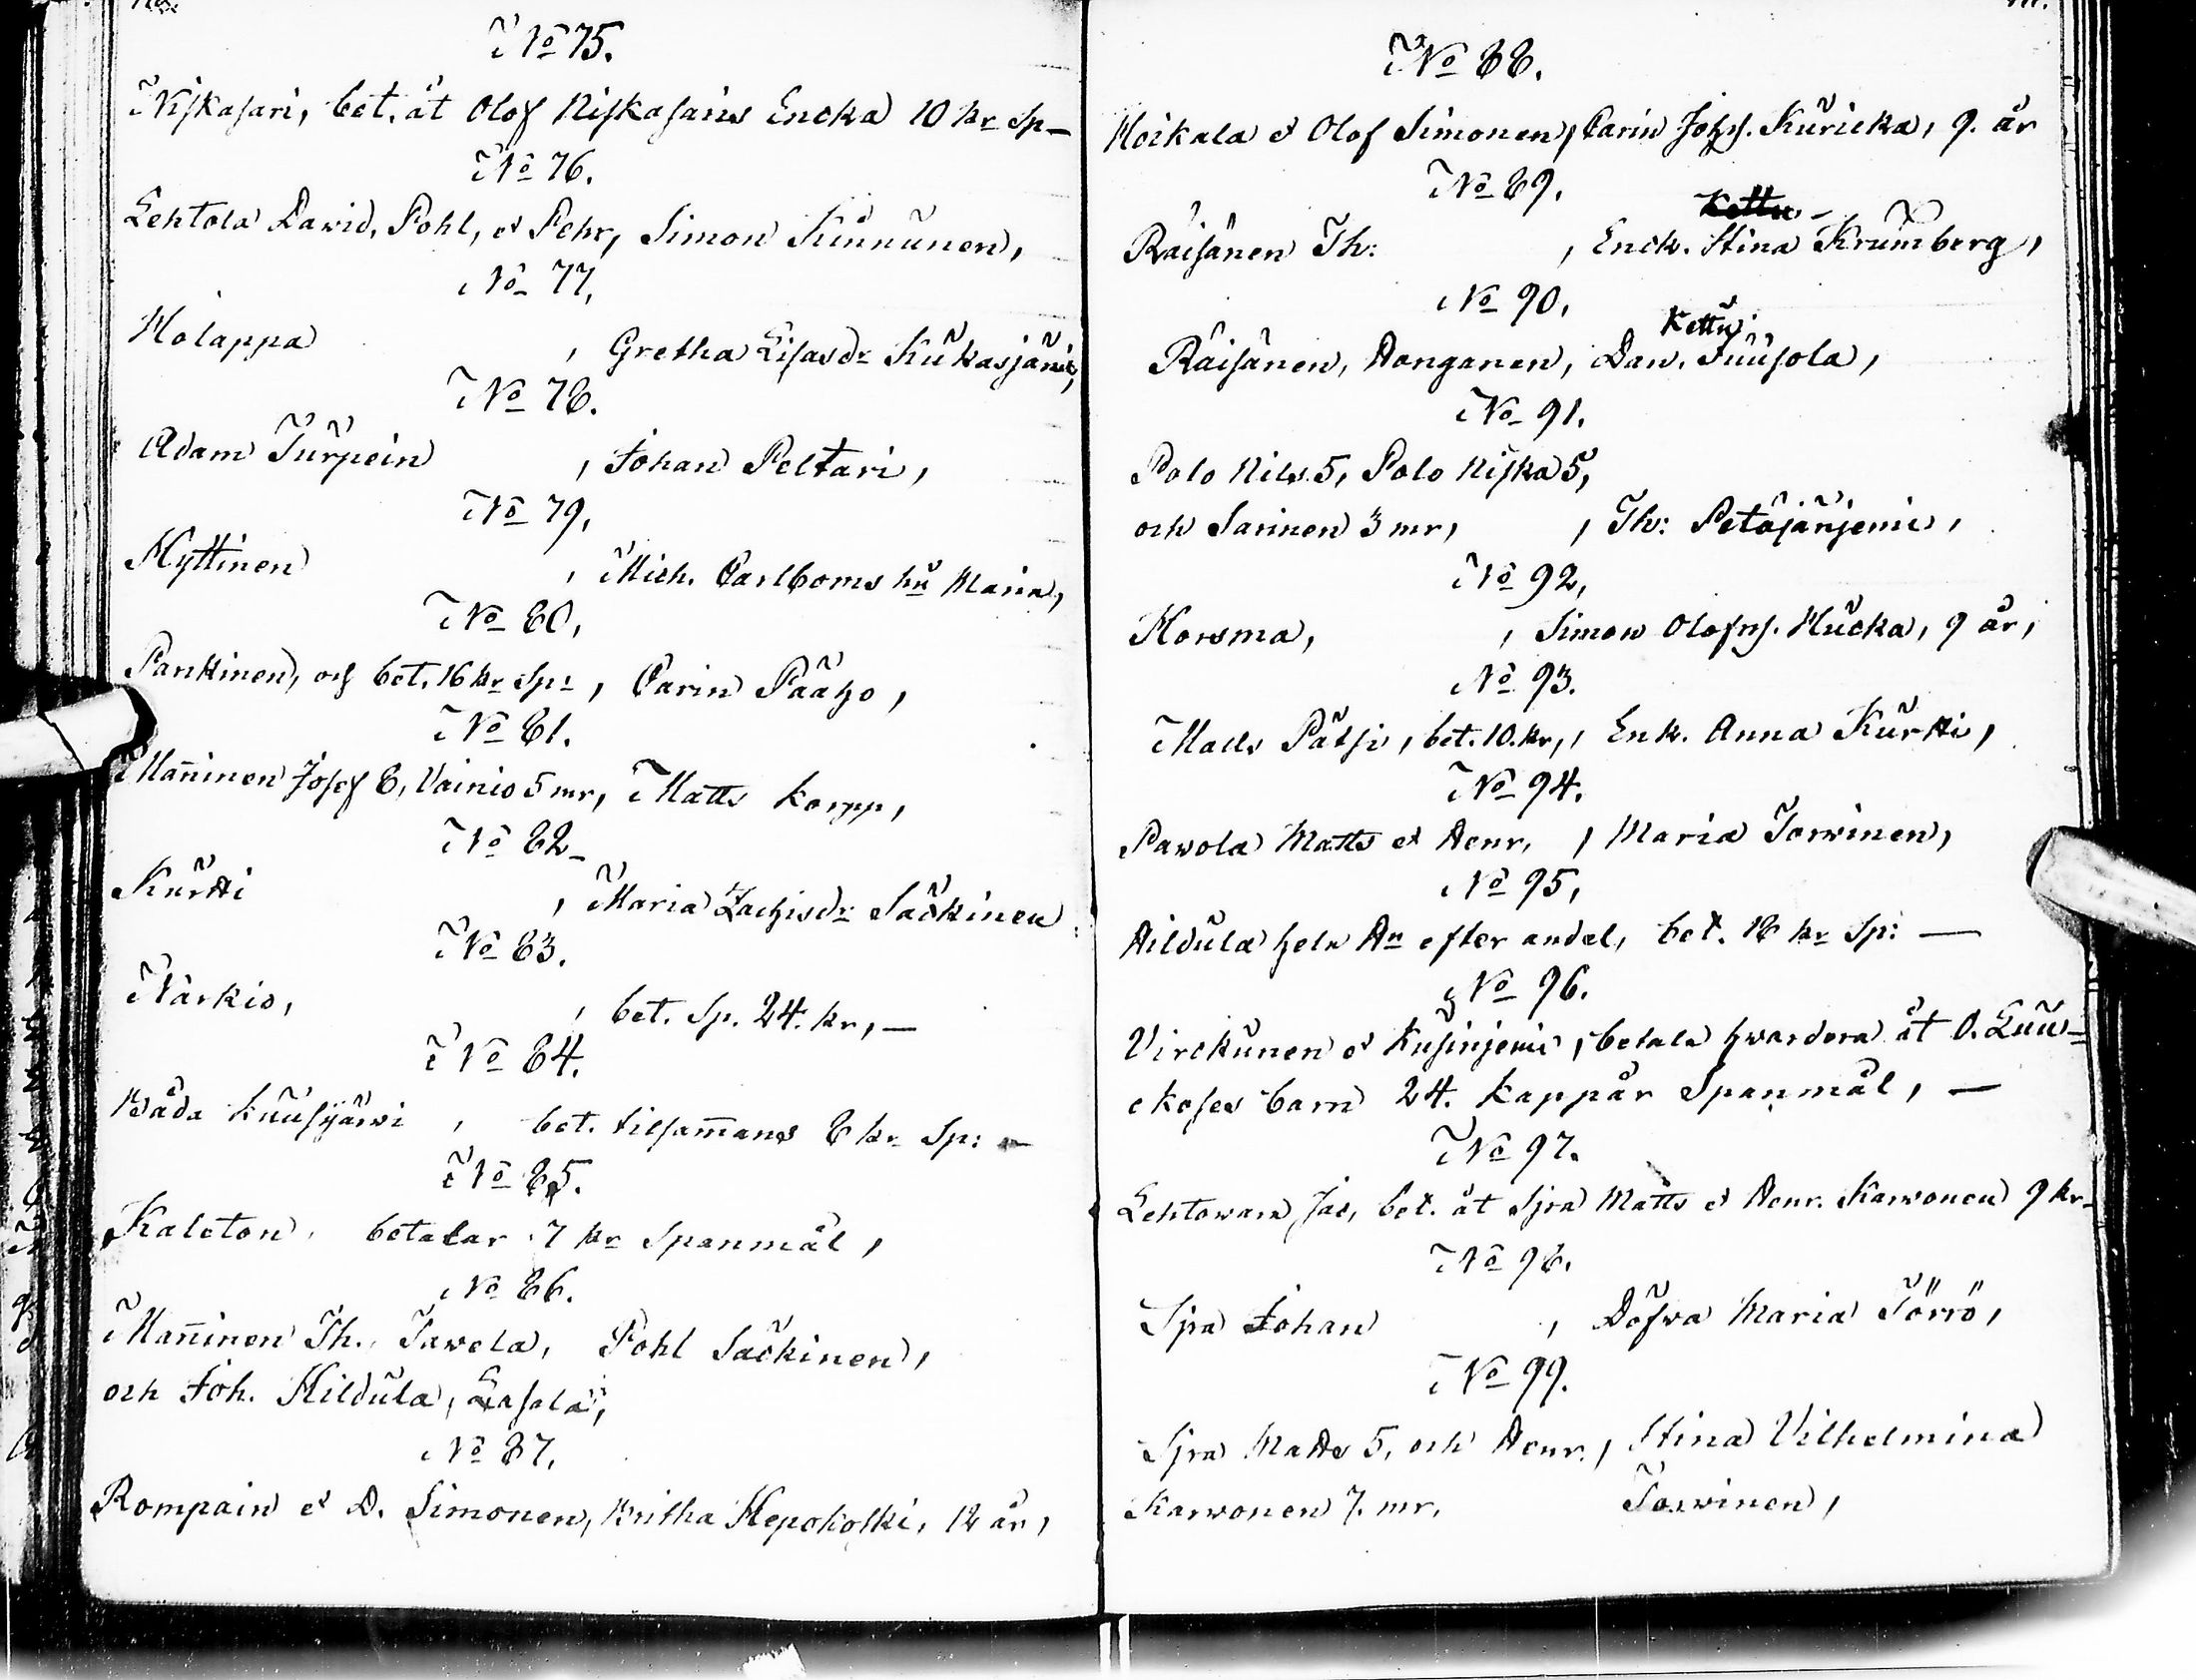 No 75.
Niskasari, bet. åt Olof Niskasaris Encka 10 kr Sp –
No 76.
Lehtola David, Pohl, et Pehr, Simon Kinnunen,
No 77,
Holappa , Gretha Lisasdr Kukasjärvi,
No 78.
Adam Turpein , Johan Peltari,
No 79,
Hyttinen , Mich. Carlboms hu Maria,
No 80,
Pankinen, och bet. 16 kr Sp: , Carin Pääho,
No 81.
Mañinen Josef 8, Vainio 5 mr, Matts Korpp,
No 82 –
Kurtti , Maria Zachisdr Säckinen
No 83.
Närkio, , bet. Sp. 24. kr, –
No 84.
Båda Kuusijärvi , bet. tilsam̄ans 8 kr Sp: –
No 85.
Kaleton, betalar 7 kr Spanmål,
No 86.
Mañinen Th., Tawela, Pohl Säckinen,
och Joh. Hildula, Lasola,
No 87,
Rompain et D. Simonen, Britha Hepokoski, 12 år,
No 88.
Hoikala et Olof Simonen, Carin Johs. Kuricka, 9. år
No 89.
Räisänen Th: , Enck. Stina Krumberg,
No 90,
Kettu
Räisänen, Honganen, Dav. Suusola,
No 91.
Polo Nils 5, Polo Niska 5,
och Sarinen 3 mr, , Th: Petäjänjemi,
No 92,
Horsma, , Simon Olofns. Hucka, 9 år,
No 93.
Matts Pätsi, bet. 10. kr, , Enk. Anna Kurtti,
No 94.
Pawola Matts et Henr. , Maria Torvinen,
No 95,
Hildula hela Hn efter andel, bet. 18 kr Sp: —
No 96.
Virckunen et Kusinjemi, betala hwardera åt O. Luu-
ckoses barn 24. kappår Spanmål, —
No 97.
Lehtowara Jac, bet. åt Sjra Matts et Henr. Karvonen 9 kr –
No 98.
Sjra Johan , Döfva Maria Törrö,
No 99.
Sjra Matts 5, och Henr. , Stina Vilhelmina
Karvonen 7. mr, Torvinen,